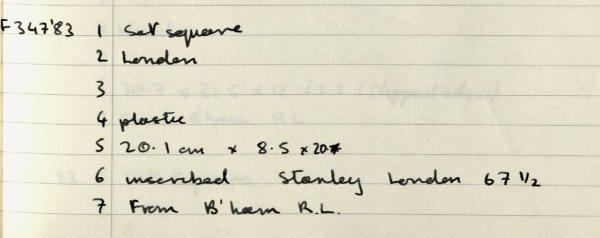 F347'83 1 Set square
2 London
3
4 plastic
5 20.1 cm x 8.5 x 20.
6 inscribed Stanley London 67 1/2
7 From B'ham R.L.